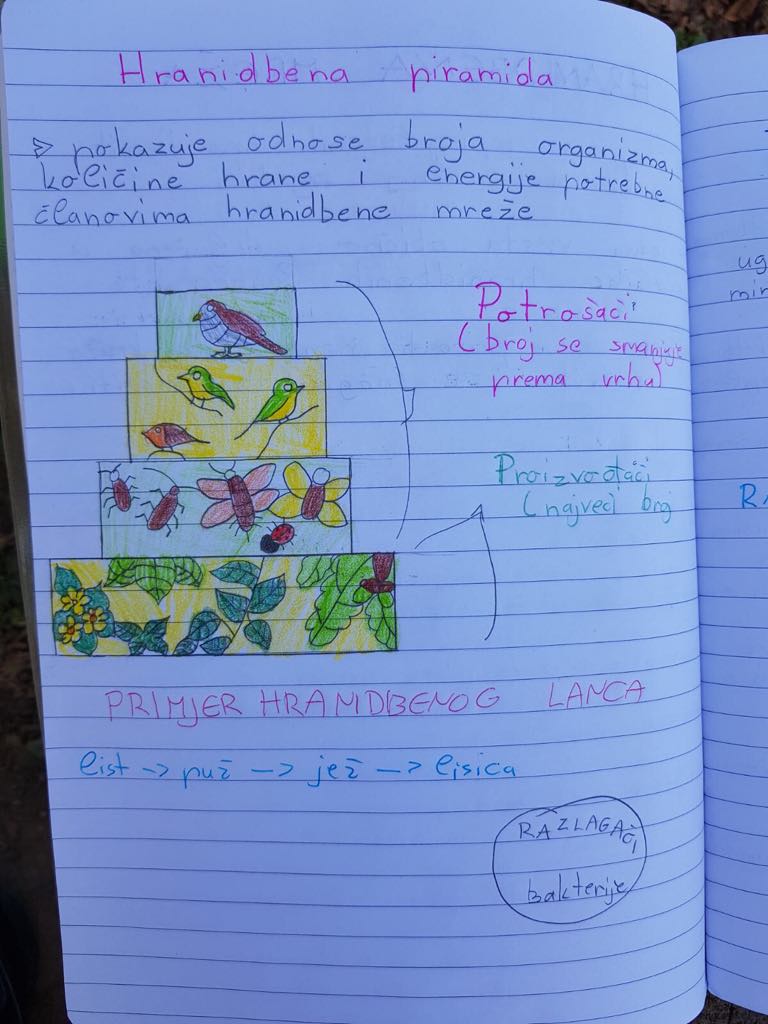 Hranidbena piramida
pokazuje odnose broja organizma,
količine hrane i energije potrebne
članovima hranidbene mreže
Potrošači
(broj se smanjuje
prema vrhu)
Proizvođači
(najveći broj
PRIMJER HRANIDBENOG LANCA
list -> puž -> jež -> lisica
RAZLAGAČI
bakterije
ug
mir
R